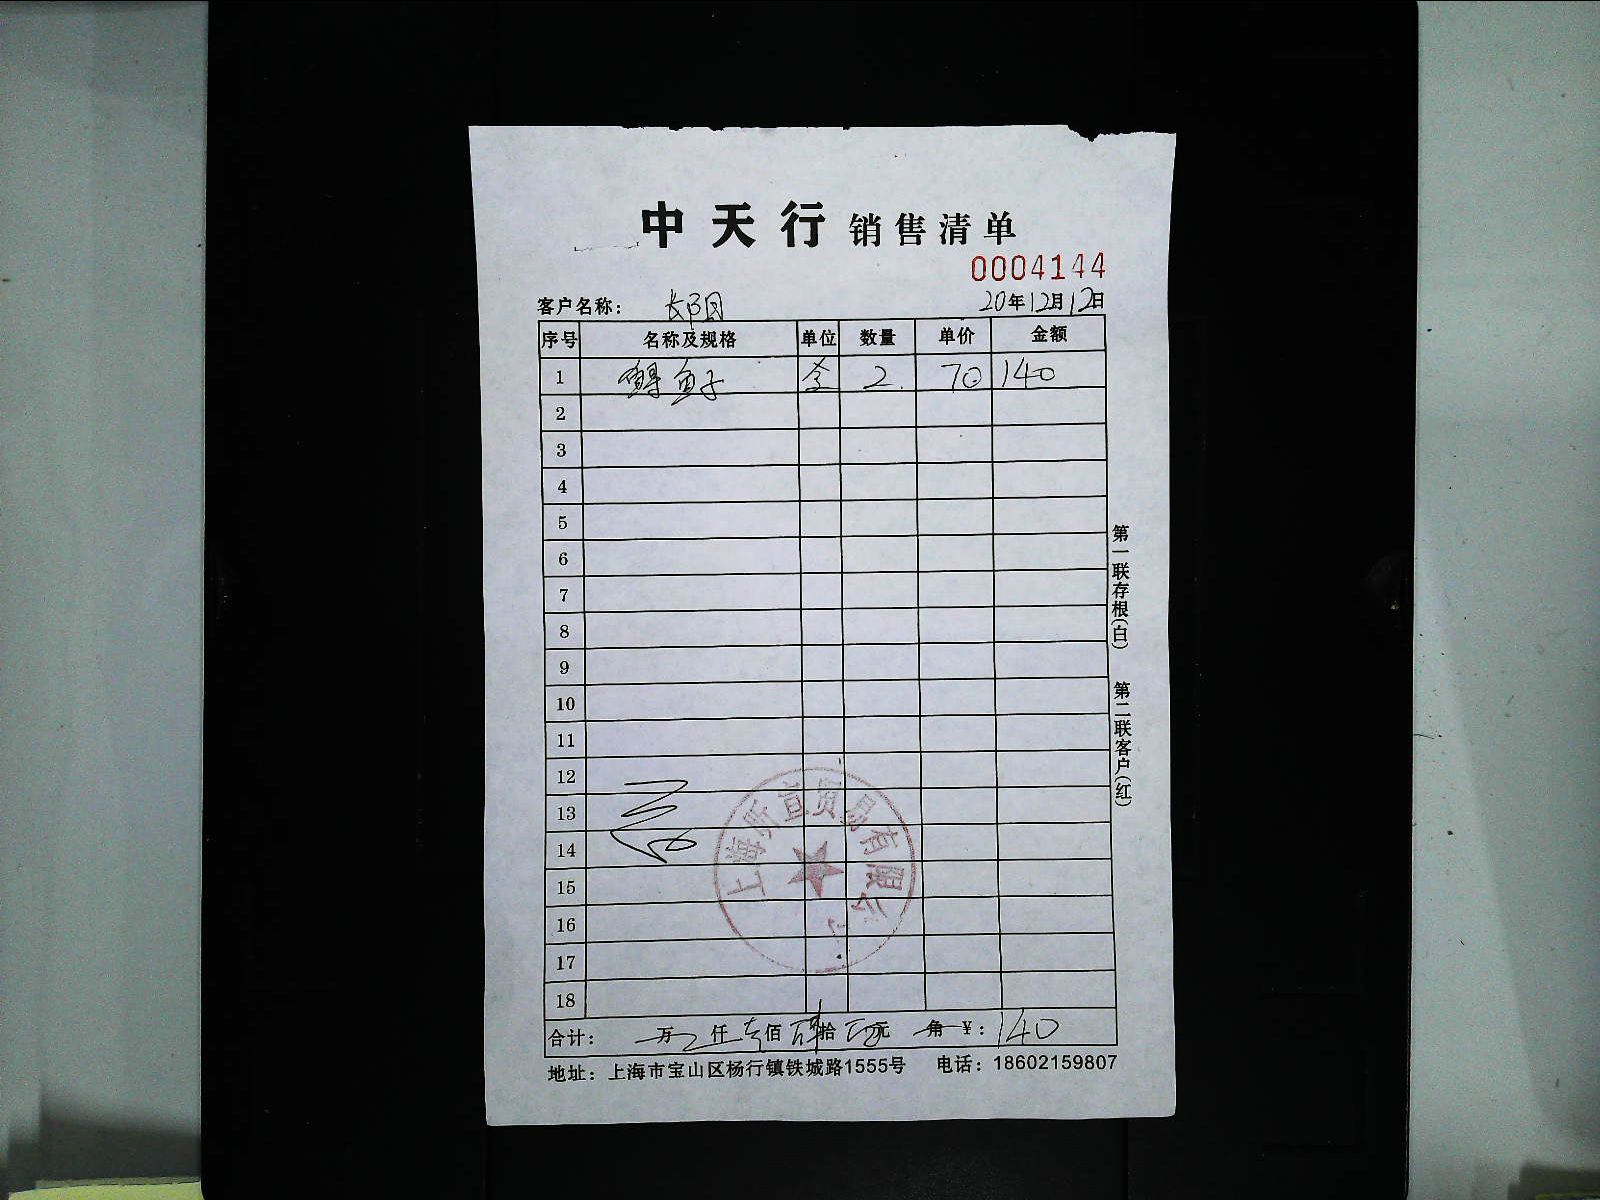 中天行 销售清单
0004144
客户名称： 长阳 20年12月12日
序号 名称及规格 单位 数量 单价 金额
1 鲟鱼子 盒 2 70 140
2
3
4
5
6
7
8
9
10
11
12
13
14
15
16
17
18
合计： 万 仟 壹佰 肆拾 元 角 ￥：140
地址：上海市宝山区杨行镇铁城路1555号 电话：18602159807
第一联存根(白) 第二联客户(红)
上海昕宣贸易有限公司